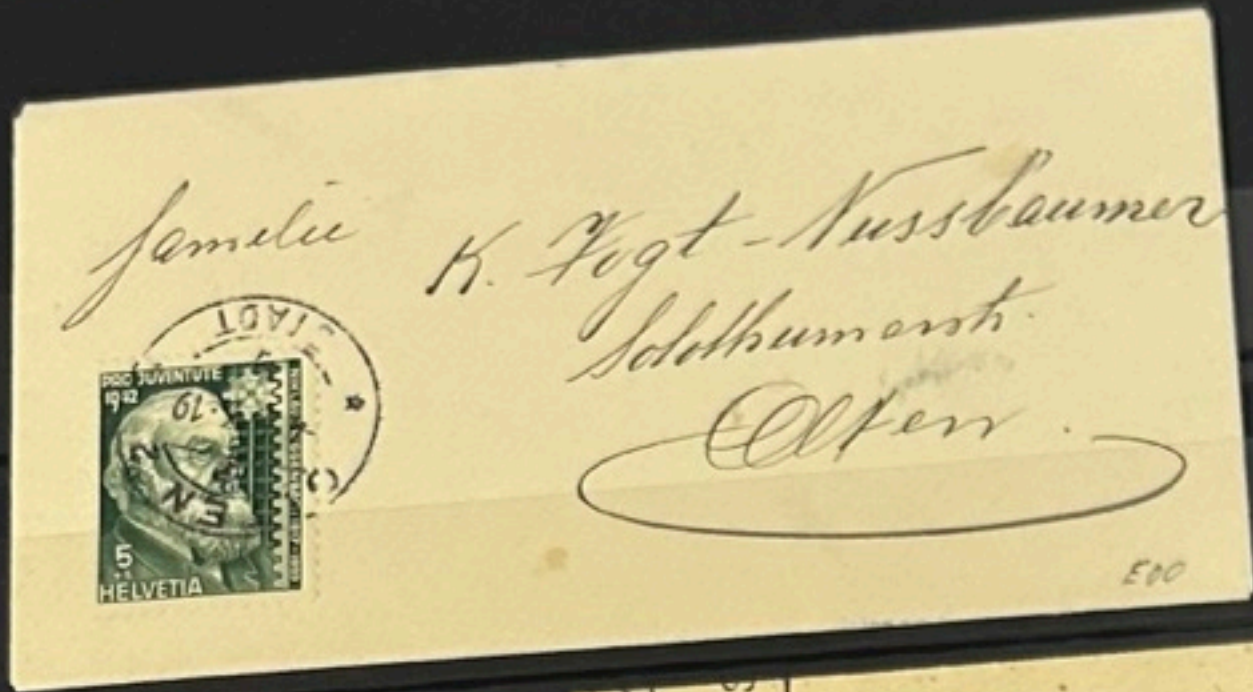 Familie
K. Vogt-Nussbaumer
Solothurnerstr.
Olten.
PRO JUVENTUTE
1942
5
HELVETIA
STADT